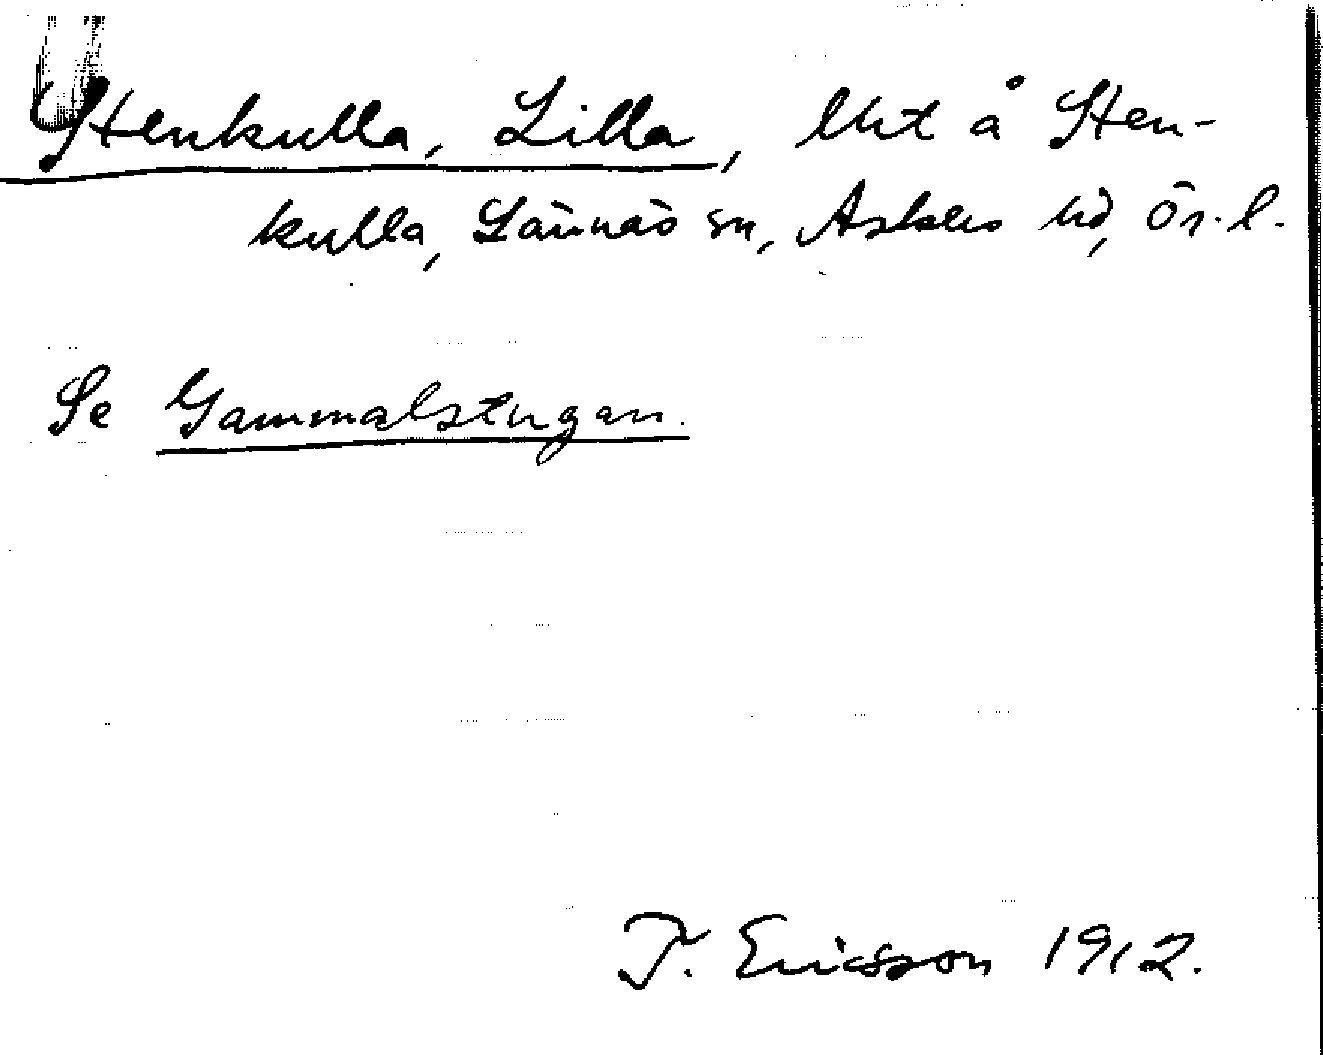 Stenkulla, Lilla, lht å Sten-
kulla, Lännäs sn, Askers hd, Ör. l.
Se Gammalstugan.
T. Ericsson 1912.